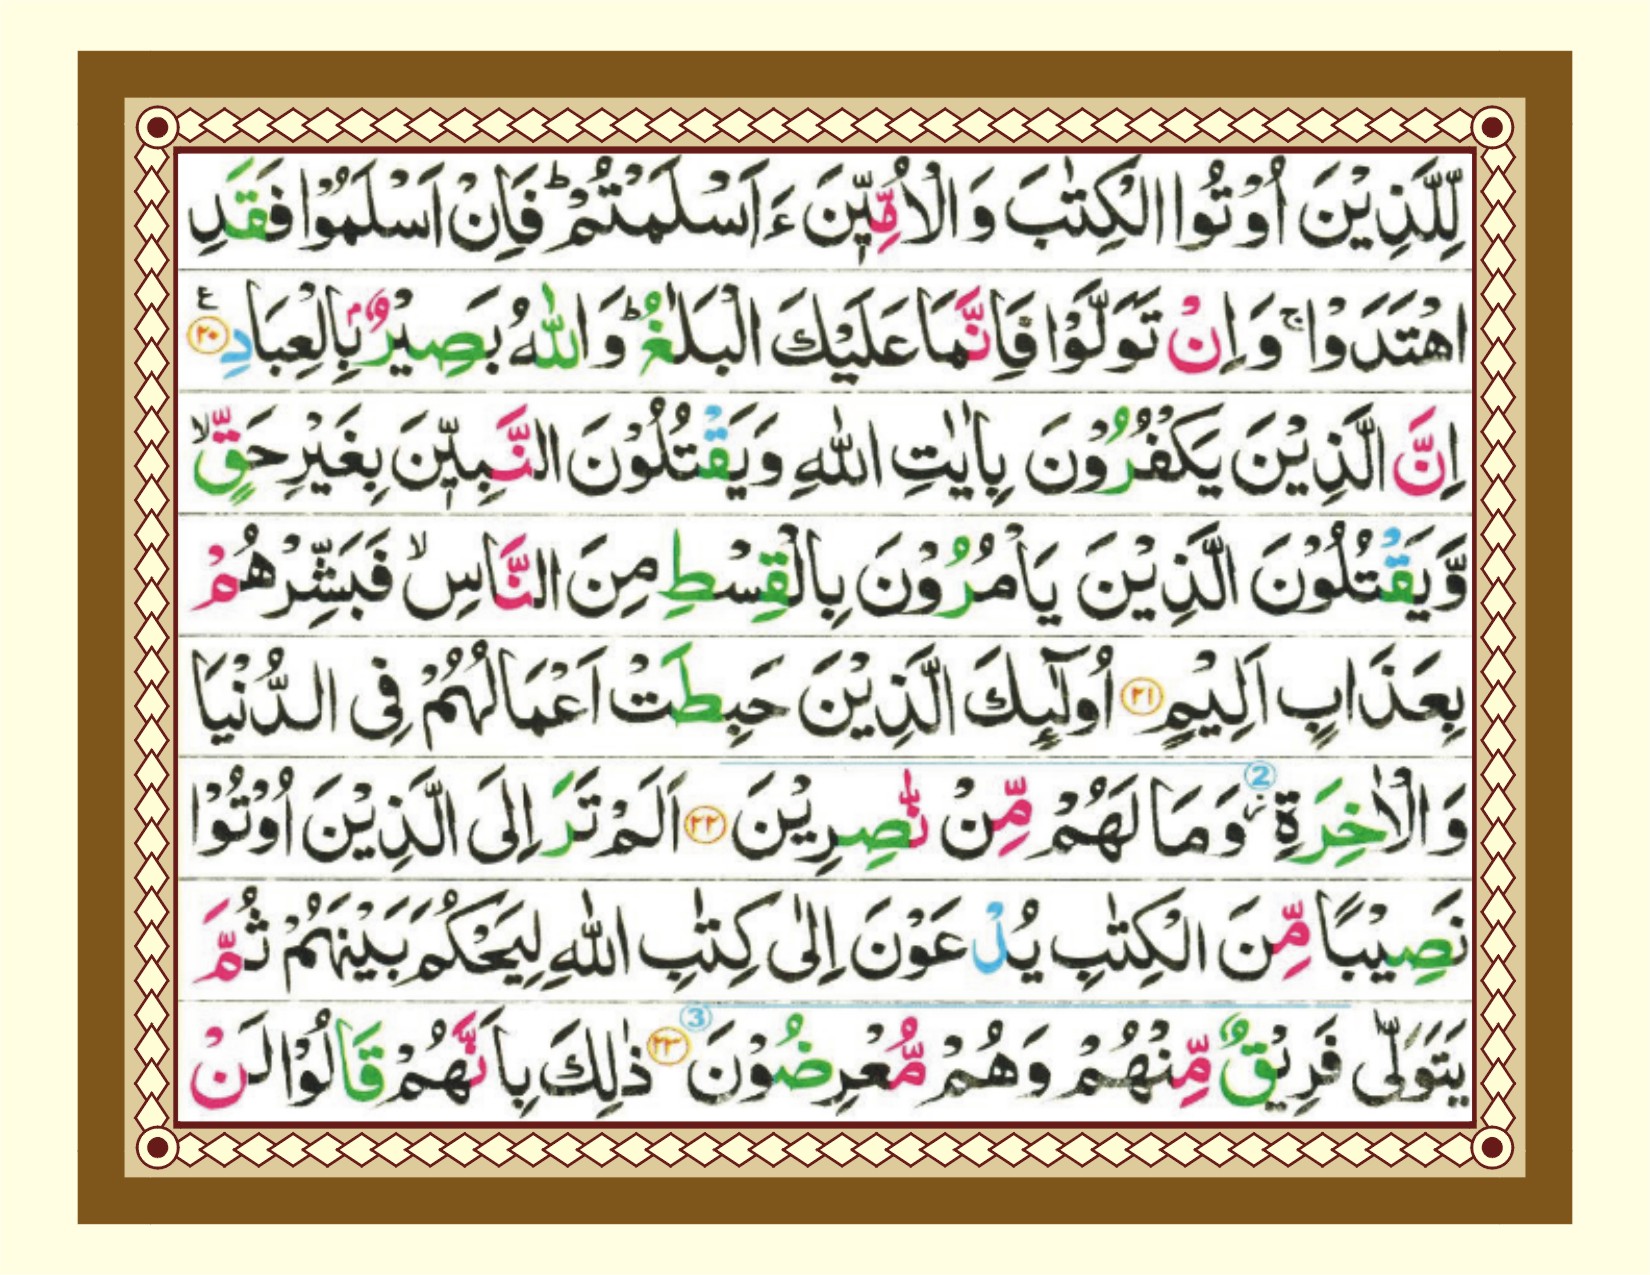 لِلَّذِيْنَ اُوْتُوا الْكِتٰبَ وَالْاُمِّيّٖنَ ءَاَسْلَمْتُمْ ؕ فَاِنْ اَسْلَمُوْا فَقَدِ
اهْتَدَوْا ۚ وَاِنْ تَوَلَّوْا فَاِنَّمَا عَلَيْكَ الْبَلٰغُ ؕ وَاللّٰهُ بَصِيْرٌۢ بِالْعِبَادِ ۲۰ ع
اِنَّ الَّذِيْنَ يَكْفُرُوْنَ بِاٰيٰتِ اللّٰهِ وَيَقْتُلُوْنَ النَّبِيّٖنَ بِغَيْرِ حَقٍّ ۙ
وَّيَقْتُلُوْنَ الَّذِيْنَ يَاْمُرُوْنَ بِالْقِسْطِ مِنَ النَّاسِ ۙ فَبَشِّرْهُمْ
بِعَذَابٍ اَلِيْمٍ ۲۱ اُولٰٓئِكَ الَّذِيْنَ حَبِطَتْ اَعْمَالُهُمْ فِى الدُّنْيَا
وَالْاٰخِرَةِ ز 2 وَمَا لَهُمْ مِّنْ نّٰصِرِيْنَ ۲۲ اَلَمْ تَرَ اِلَى الَّذِيْنَ اُوْتُوْا
نَصِيْبًا مِّنَ الْكِتٰبِ يُدْعَوْنَ اِلٰى كِتٰبِ اللّٰهِ لِيَحْكُمَ بَيْنَهُمْ ثُمَّ
يَتَوَلّٰى فَرِيْقٌ مِّنْهُمْ وَهُمْ مُّعْرِضُوْنَ 3 ۲۳ ذٰلِكَ بِاَنَّهُمْ قَالُوْا لَنْ